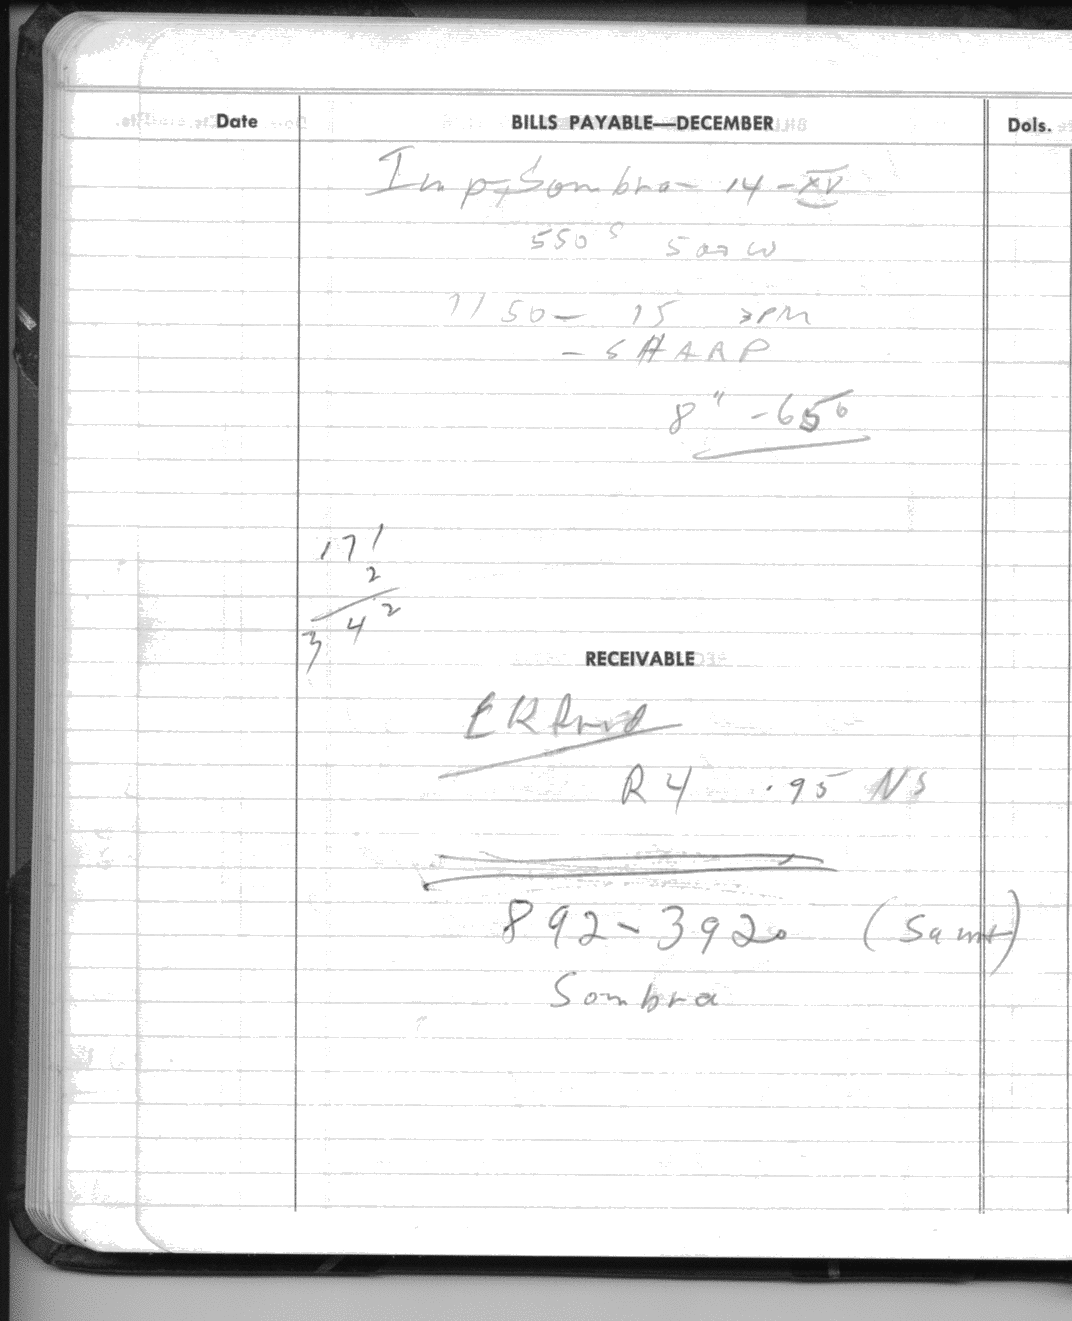 Date BILLS PAYABLE—DECEMBER Dols.
Imp, Sombra 14 - XV
550 S 500 W
1150 - 15 3PM
- SHARP
8" - 650
171
2
342
RECEIVABLE
R4 .95 NS
892-3920 (Samt)
Sombra